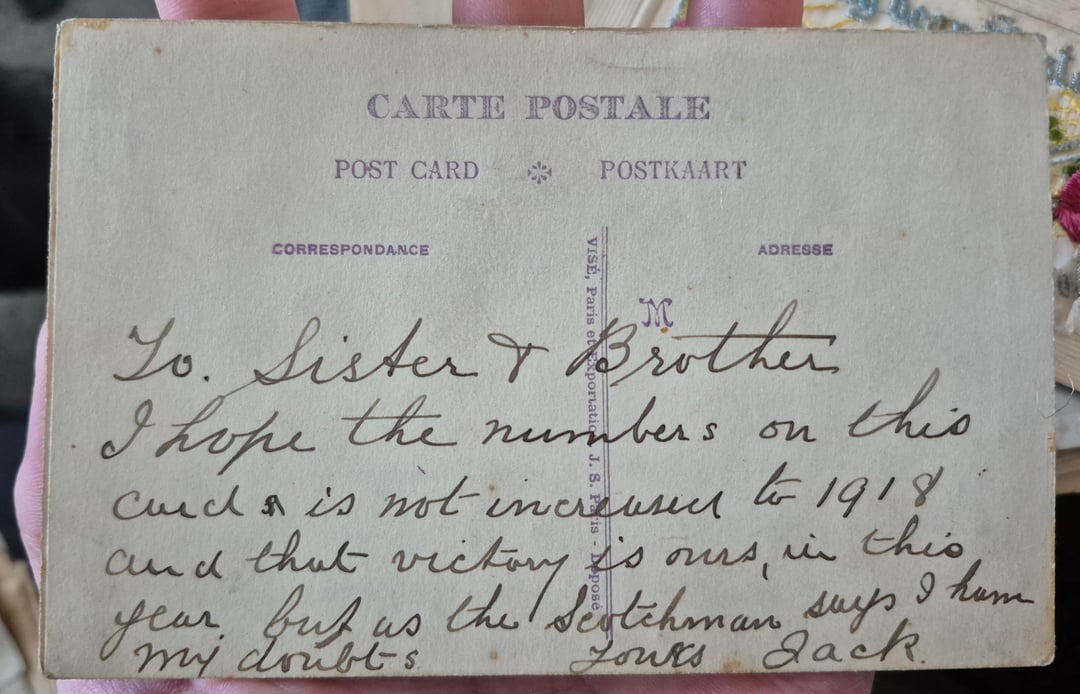 CARTE POSTALE
POST CARD POSTKAART
CORRESPONDANCE ADRESSE
VISÉ, Paris et Exportation J. S. Paris - Déposé
M
To. Sister & Brother
I hope the numbers on this
card is not increased to 1918
and that victory is ours, in this
year, but as the Scotchman says I ham
my doubts Yours Jack.